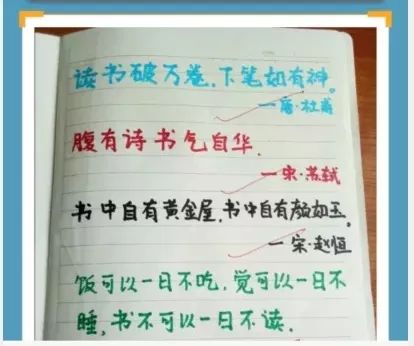 读书破万卷，下笔如有神。
—唐·杜甫
腹有诗书气自华．
—宋·苏轼
书中自有黄金屋，书中自有颜如玉。
—宋·赵恒
饭可以一日不吃，觉可以一日不
睡，书不可以一日不读．